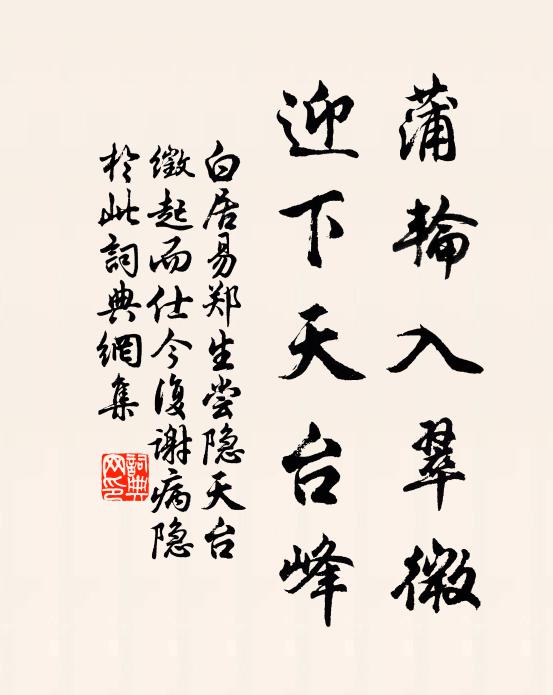 蒲輪入翠微
迎下天台峰
白居易郑生尝隐天台
徵起而仕今復谢病隐
於此詞典網集
詞典
网印